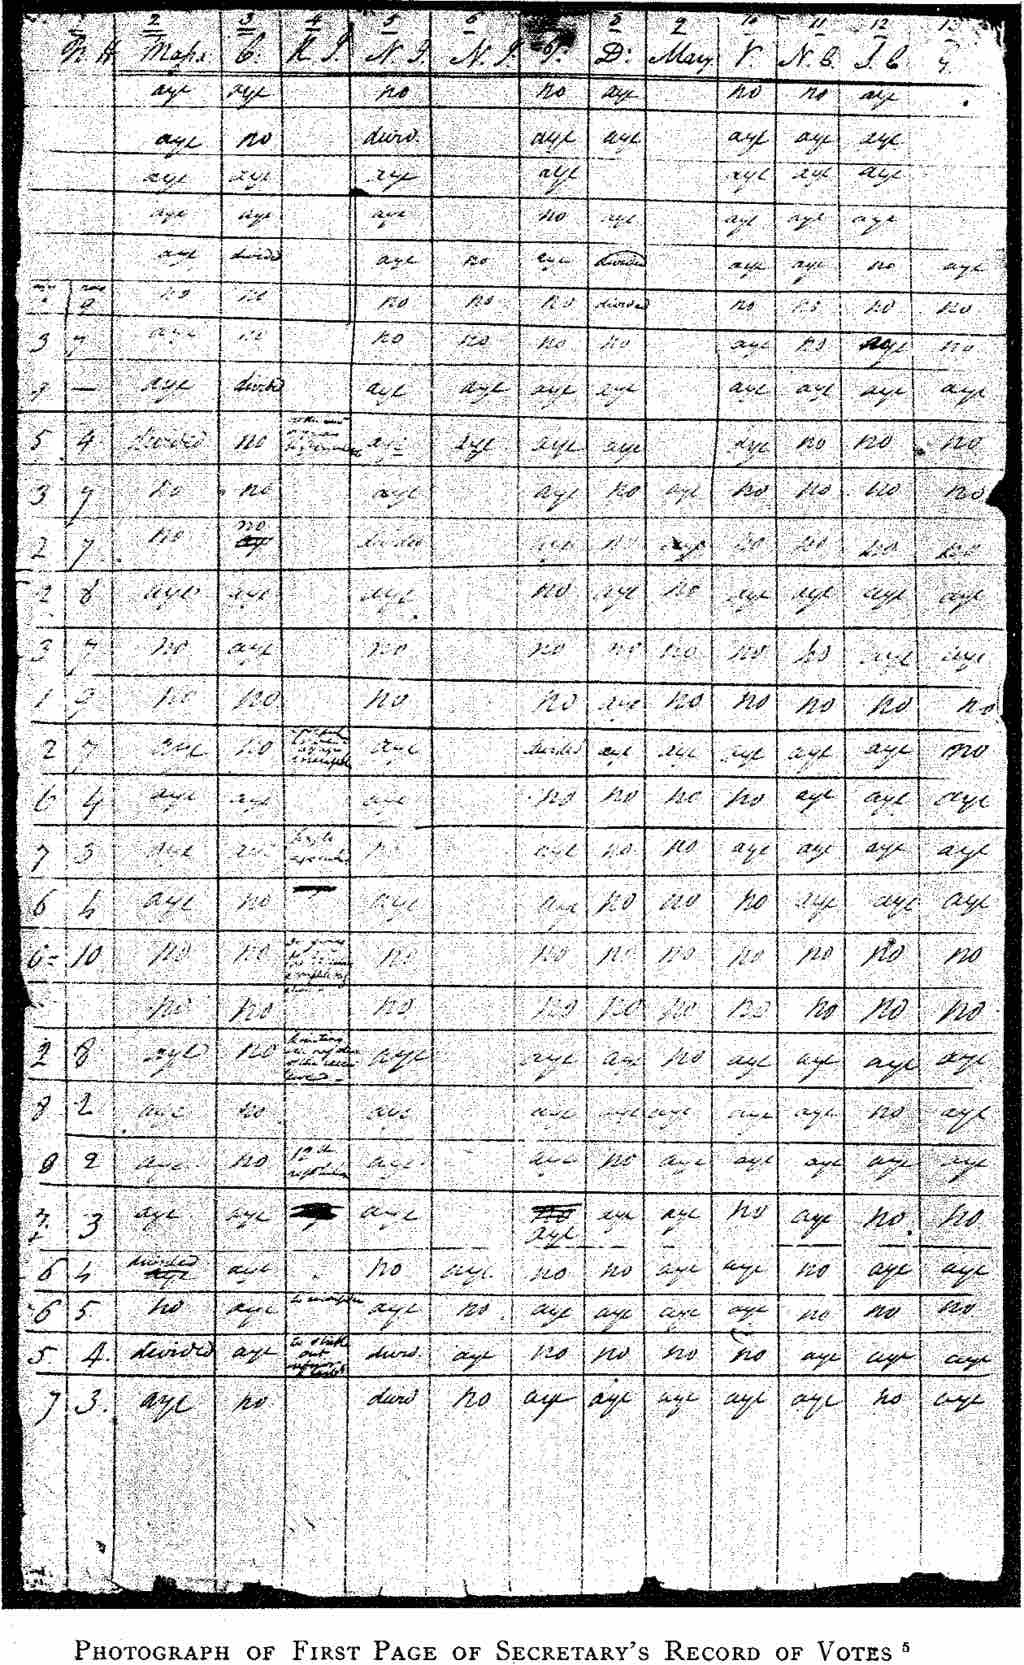 2 3 4 5 6 8 9 10 11 12 13
N H Mass. C. R I. N. Y. N. J P. D: Mary V. N. C. S. C G.
aye aye no no aye no no aye
aye no divid. aye aye aye aye aye
aye aye aye aye aye aye aye
aye aye aye no aye aye aye aye
aye divided aye no aye divided aye aye no aye
no no no no no divided no no no no
3 7 aye no no no no no aye no aye no
aye divided aye aye aye aye aye aye aye aye
5 4 divided no aye aye aye aye aye no no no
3 7 no no aye aye no aye no no no no
2 7 no no divided aye no aye no no no no
2 8 aye aye aye no aye no aye aye aye aye
3 7 no aye no no no no no no aye aye
1 9 no no no no aye no no no no no
2 7 aye no aye divided aye aye aye aye aye no
6 4 aye aye aye no no no no aye aye aye
7 3 aye aye no aye no no aye aye aye aye
6 4 aye no aye aye no no no aye aye aye
10 no no no no no no no no no no
no no no no no no no no no no
2 8 aye no aye aye aye no aye aye aye aye
8 2 aye no aye aye aye aye aye aye no aye
8 2 aye no aye aye no aye aye aye aye aye
7 3 aye aye aye no aye aye aye no aye no no
6 4 divided aye aye no aye no no aye aye no aye aye
6 5 no aye aye no aye aye aye aye no no no
5 4. divided aye to strike out divid. aye no no no no aye aye aye
7 3. aye no divid no aye aye aye aye aye no aye
PHOTOGRAPH OF FIRST PAGE OF SECRETARY'S RECORD OF VOTES 5